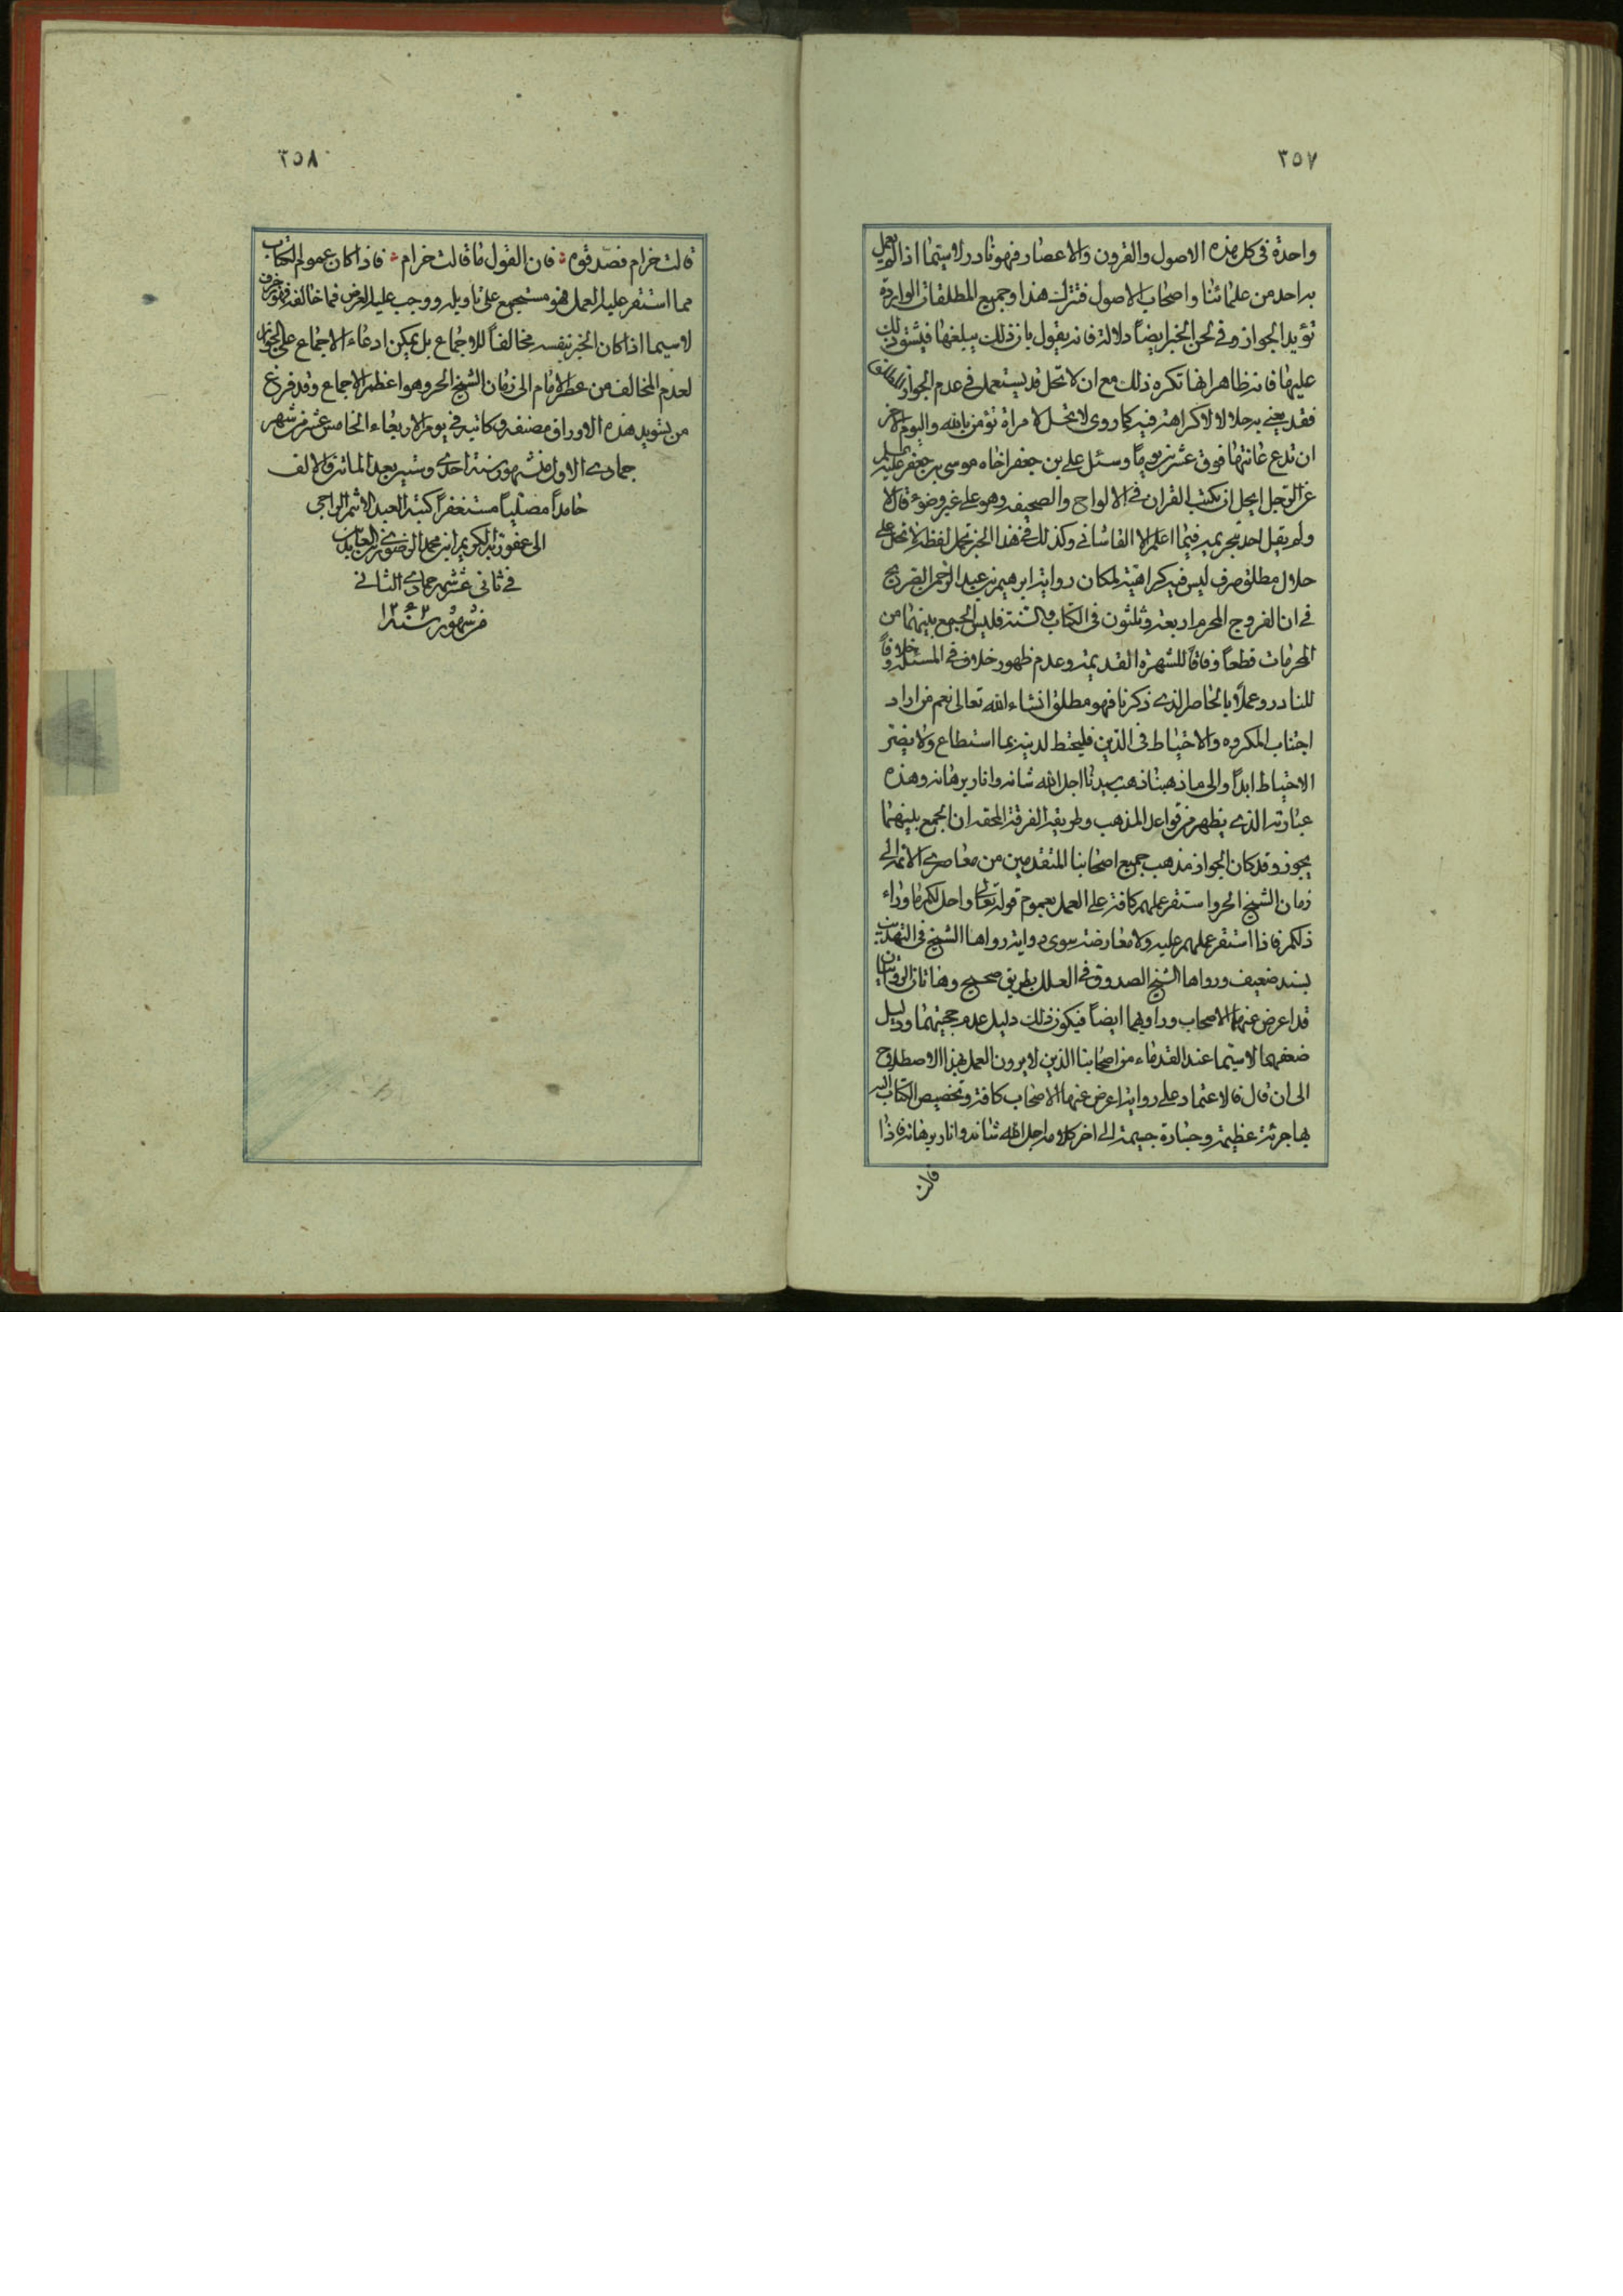 ٢٥٧
واحدة فی كل هذه الاصول والقرون والاعصار فهو نادر لاسیما اذا لم یعمل
به احد من علمائنا واصحاب الاصول فترك هذا وجمیع المطلقات الواردة
تؤید الجواز وفی لحن الخبر ایضاً دلالة فانه یقول بان ذلك یبلغها فیشق ذلك
علیها فانه ظاهر انها تكره ذلك مع ان لا تحل قد یستعمل فی عدم الجواز
فقد یعنی به حلالا لا كراهة فیه كما روی لا یحل لامراة تؤمن بالله والیوم الاخر
ان تدع عانتها فوق عشرین یوماً وسئل علی بن جعفر اخاه موسی بن جعفر علیه السلم
عن الرجل ایحل ان یكتب القران فی الالواح والصحیفه وهو علی غیر وضوء قال لا
ولم یقل احد بتحریمه فیما اعلم الا القاشانی وكذلك فی هذا الخبر تحمل لفظة لا تحل علی
حلال مطلق صرف لیس فیه كراهیة لمكان روایة ابرهیم بن عبد الرحمن الصریح
فی ان الفروج المحرم اربعة وثلثون فی الكتاب والسنة فلیس الجمع بینهما من
المحرمات قطعاً وفاقاً للشهرة القدیمة وعدم ظهور خلاف فی المسئلة وخلافاً
للنادر وعملاً بالخاص الذی ذكرنا فهو مطلق انشاء الله تعالی نعم من اراد
اجتناب المكروه والاحتیاط فی الدین فلیحتط لدینه بما استطاع ولا یضر
الاحتیاط ابداً والی ما ذهبنا ذهب سیدنا اجل الله شانه وانار برهانه وهذه
عبارته الذی یظهر من قواعد المذهب وطریقة الفرقة المحقه ان الجمع بینهما
یجوز وقد كان الجواز مذهب جمیع اصحابنا المتقدمین من معاصری الائمة الی
زمان الشیخ الحر واستقر عملهم كافة علی العمل بعموم قوله تعالی واحل لكم ما وراء
ذلكم فاذا استقر عملهم علیه ولا معارضة سوی روایة رواها الشیخ فی التهذیب
بسند ضعیف ورواها الشیخ الصدوق فی العلل بطریق صحیح وهاتان الروایتان
قد اعرض عنهما الاصحاب وراویهما ایضاً فیكون ذلك دلیل عدم حجیتهما ودلیل
ضعفهما لاسیما عند القدماء من اصحابنا الذین لا یرون العمل بهذا الاصطلاح
الی ان قال فالاعتماد علی روایة اعرض عنها الاصحاب كافة وتخصیص الكتاب
بها جرئة عظیمة وجسارة جسیمة الی اخر كلامه اجل الله شانه وانار برهانه فاذا
قالت
٢٥٨
قالت خرام فصدقوه ؞ فان القول ما قالت خرام ؞ فاذا كان عموم الكتاب
مما استقر علیه العمل فهو مستجمع علی تاویله ووجب علیه العرض فما خالفه فهو زخرف
لاسیما اذا كان الخبر بنفسه مخالفاً للاجماع بل یمكن ادعاء الاجماع علی الجواز
لعدم المخالف من عصر الامام الی زمان الشیخ الحر وهو اعظم الاجماع وقد فرغ
من تسوید هذه الاوراق مصنفه وكاتبه فی یوم الاربعاء الخامس عشر من شهر
جمادی الاول من شهور سنة احدی وستین بعد المائتین والالف
حامداً مصلیاً مستغفراً كتبه العبد الاثم الراجی
الی عفو ربه الكریم ابن محمد الرضوی زین العابدین
فی ثانی عشر شهر جمادی الثانی
من شهور سنة